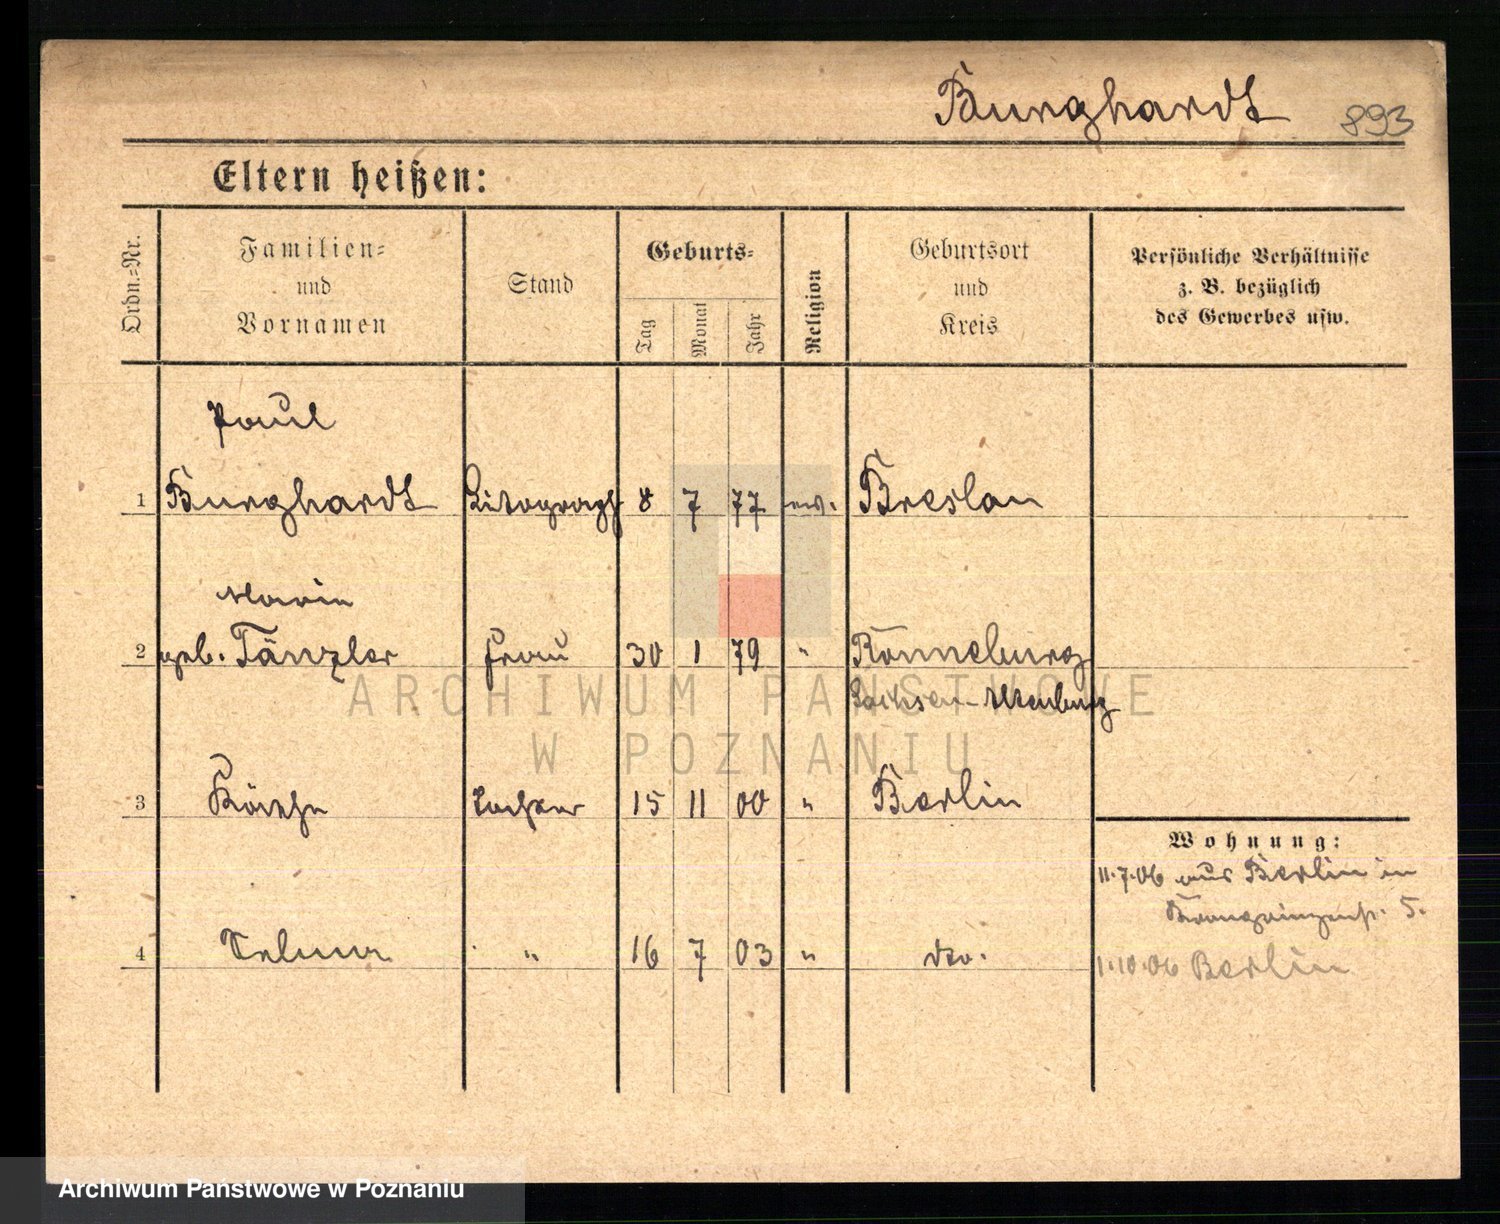 Burghardt 893
Eltern heißen:
Ordn.-Nr.
Familien-
und
Vornamen
Stand
Geburts-
Tag
Monat
Jahr
Religion
Geburtsort
und
Kreis
Persönliche Verhältnisse
z. B. bezüglich
des Gewerbes usw.
Paul
1 Burghardt Litograph 8 7 77 ev. Breslau
Marie
2 geb. Tänzler Frau 30 1 79 " Ronneburg
Sachsen-Altenburg
3 Käthe Tochter 15 11 00 " Berlin
Wohnung:
11.7.06 aus Berlin in
Kronprinzenstr. 5.
4 Selma " 16 7 03 " dto.
1.10.06 Berlin
ARCHIWUM PAŃSTWOWE
W POZNANIU
Archiwum Państwowe w Poznaniu